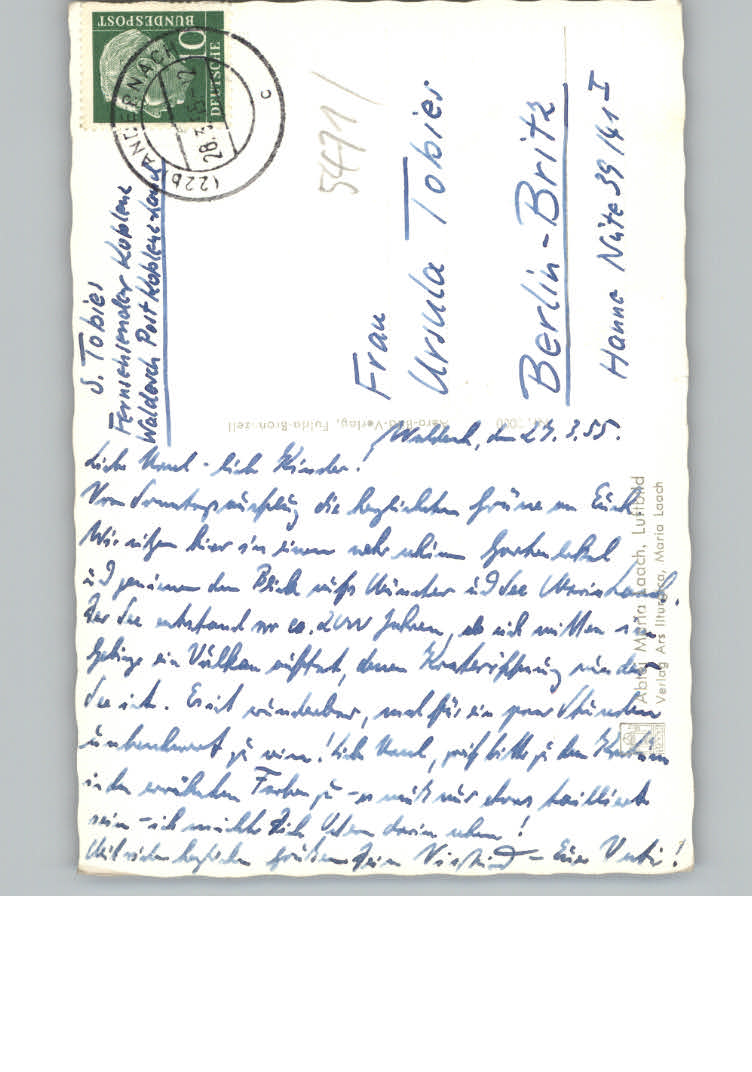 DEUTSCHE
BUNDESPOST
10
(22b) ANDERNACH
28.3.55-12
c
5471/
S. Tobies
Fernsehsender Koblenz
Waldesch Post Koblenz-Land
Frau
Ursula Tobies
Berlin-Britz
Hanne Nüte 39 I
Aero-Bild-Verlag, Fulda-Bronnzell
Waldesch, den 27.3.55.
Liebe - liebe Kinder!
Vom Sonntagsausflug die herzlichsten Grüsse an Euch
Wir sitzen hier in einem sehr schönen Gartenlokal
und geniessen den Blick aufs Münster und See Maria Laach.
Der See entstand vor ca. 2000 Jahren, als sich mitten im
Gebirge ein Vulkan auftat, dessen Krateröffnung nun der
See ist. Es ist wunderbar, mal für ein paar Stunden
unbeschwert zu sein! Liebe, greif bitte zu dem Kostüm
in den erwähnten Farben zu - es muß nur etwas tailliert
sein - ich möchte Dich darin sehen!
Mit vielen herzlichen Grüssen Dein - Euer Vati!
Abtei Maria Laach, Luftbild
Verlag Ars liturgica, Maria Laach